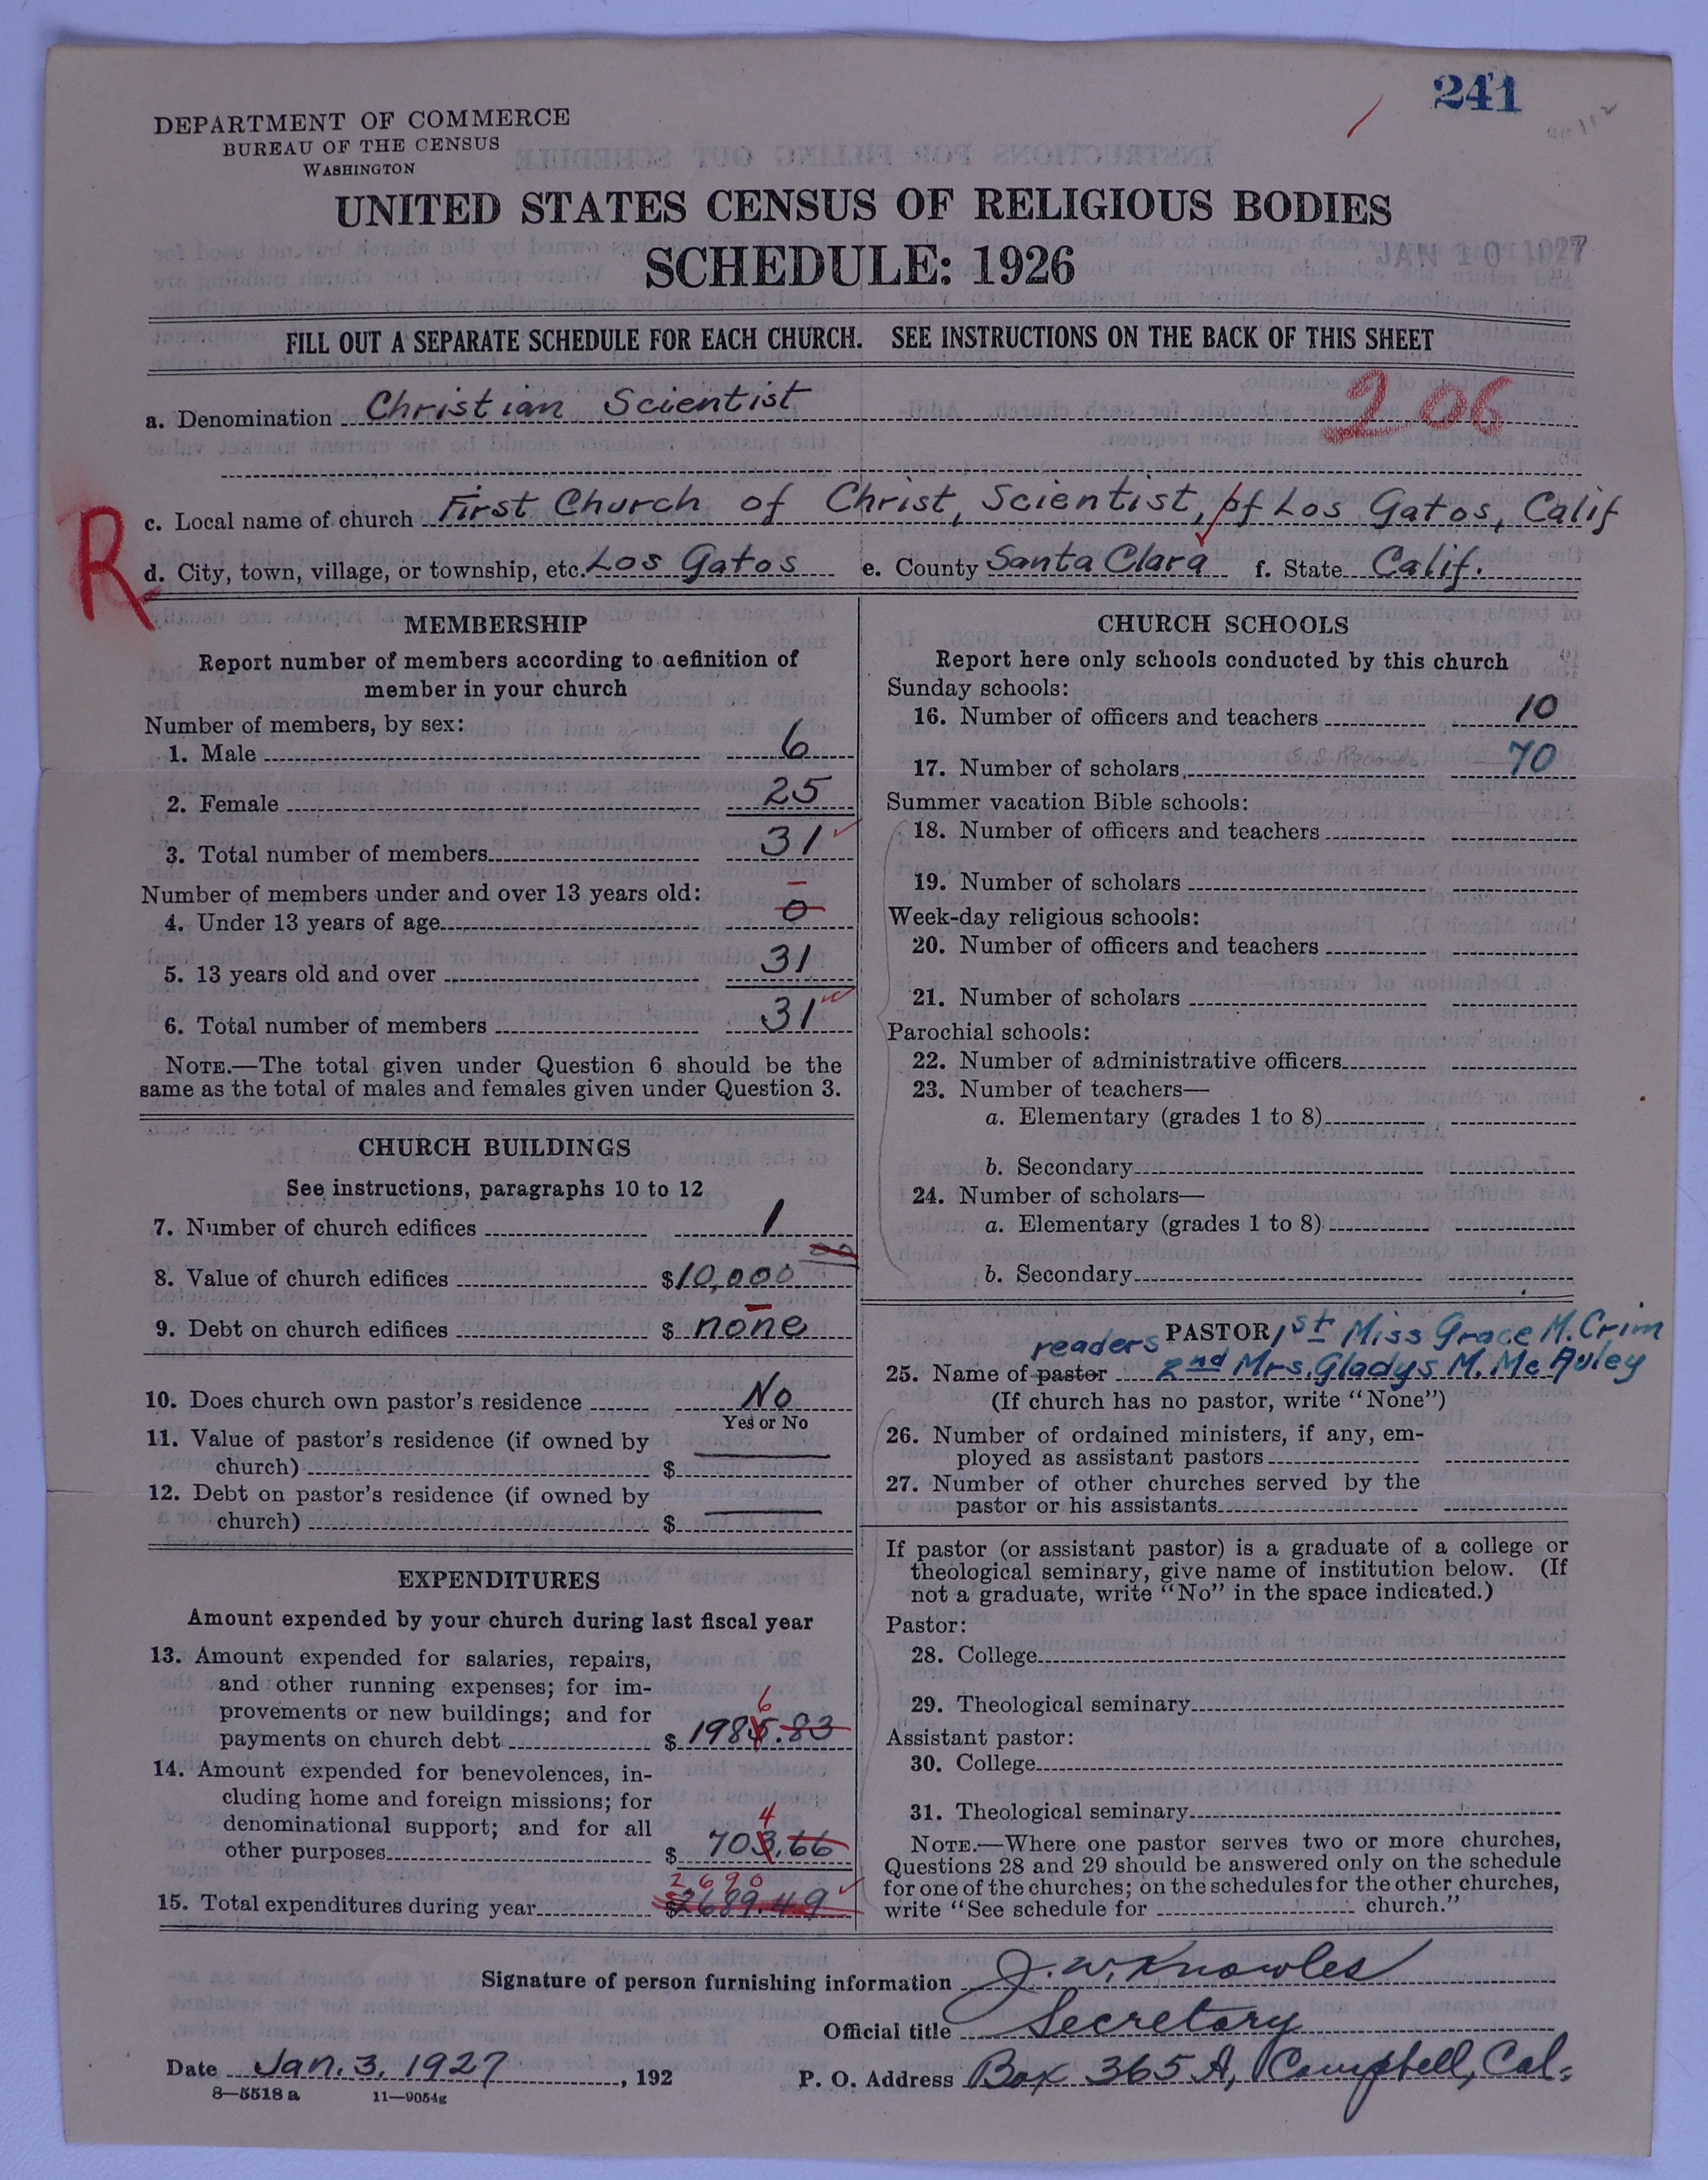 241
DEPARTMENT OF COMMERCE
BUREAU OF THE CENSUS
WASHINGTON
UNITED STATES CENSUS OF RELIGIOUS BODIES
SCHEDULE: 1926
JAN 10 1927
FILL OUT A SEPARATE SCHEDULE FOR EACH CHURCH. SEE INSTRUCTIONS ON THE BACK OF THIS SHEET
a. Denomination Christian Scientist
206
R
c. Local name of church First Church of Christ, Scientist, of Los Gatos, Calif
d. City, town, village, or township, etc. Los Gatos e. County Santa Clara f. State Calif.
MEMBERSHIP
Report number of members according to definition of
member in your church
Number of members, by sex:
1. Male 6
2. Female 25
3. Total number of members 31
Number of members under and over 13 years old:
4. Under 13 years of age 0
5. 13 years old and over 31
6. Total number of members 31
NOTE.—The total given under Question 6 should be the
same as the total of males and females given under Question 3.
CHURCH BUILDINGS
See instructions, paragraphs 10 to 12
7. Number of church edifices 1
8. Value of church edifices $10,000 00
9. Debt on church edifices $ none
10. Does church own pastor's residence No
Yes or No
11. Value of pastor's residence (if owned by
church) $
12. Debt on pastor's residence (if owned by
church) $
EXPENDITURES
Amount expended by your church during last fiscal year
13. Amount expended for salaries, repairs,
and other running expenses; for im-
provements or new buildings; and for
6
payments on church debt $ 1985.83
14. Amount expended for benevolences, in-
cluding home and foreign missions; for
denominational support; and for all
4
other purposes $ 703.66
2690
15. Total expenditures during year $2689.49
CHURCH SCHOOLS
Report here only schools conducted by this church
Sunday schools:
16. Number of officers and teachers 10
17. Number of scholars 70
Summer vacation Bible schools:
18. Number of officers and teachers
19. Number of scholars
Week-day religious schools:
20. Number of officers and teachers
21. Number of scholars
Parochial schools:
22. Number of administrative officers
23. Number of teachers—
a. Elementary (grades 1 to 8)
b. Secondary
24. Number of scholars—
a. Elementary (grades 1 to 8)
b. Secondary
readers PASTOR 1st Miss Grace M. Crim
25. Name of pastor 2nd Mrs. Gladys M. McAuley
(If church has no pastor, write "None")
26. Number of ordained ministers, if any, em-
ployed as assistant pastors
27. Number of other churches served by the
pastor or his assistants
If pastor (or assistant pastor) is a graduate of a college or
theological seminary, give name of institution below. (If
not a graduate, write "No" in the space indicated.)
Pastor:
28. College
29. Theological seminary
Assistant pastor:
30. College
31. Theological seminary
NOTE.—Where one pastor serves two or more churches,
Questions 28 and 29 should be answered only on the schedule
for one of the churches; on the schedules for the other churches,
write "See schedule for church."
Signature of person furnishing information J. W. Knowles
Official title Secretary
Date Jan. 3, 1927, 192 P. O. Address Box 365 A, Campbell, Cal.
8—5518 a 11—9054g